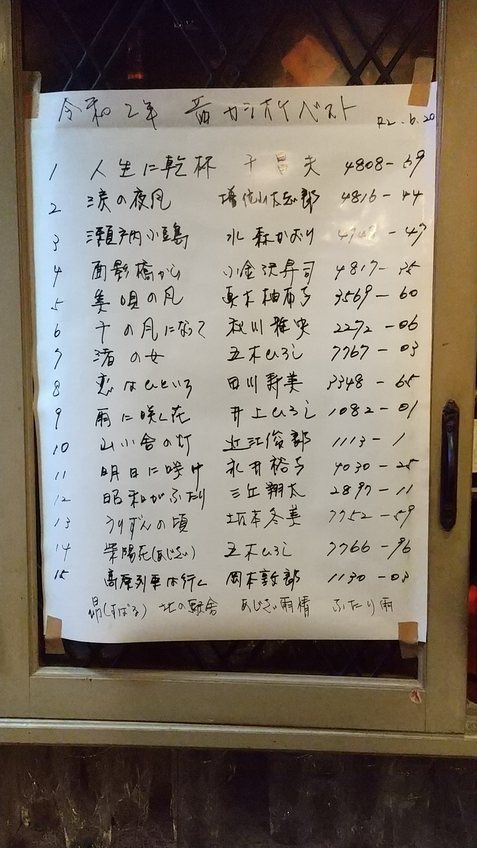 令和2年 音カラオケベスト R2.6.20
1 人生に乾杯 千昌夫 4808-59
2 涙の夜風 増位山太志郎 4816-44
3 瀬戸内小豆島 水森かおり 47
4 面影橋から 小金沢昇司 4817-35
5 美唄の風 真木柚布子 3569-60
6 千の風になって 秋川雅史 2272-06
7 渚の女 五木ひろし 7767-03
8 恋はひといろ 田川寿美 3348-65
9 雨に咲く花 井上ひろし 1082-01
10 山小舎の灯 近江俊郎 1113-1
11 明日に咲け 永井裕子 4030-25
12 昭和がふたり 三丘翔太 2897-11
13 うりずんの頃 坂本冬美 7752-59
14 紫陽花(あじさい) 五木ひろし 7766-96
15 高原列車は行く 岡本敦郎 1130-03
昴(すばる) 北の駅舎 あじさい雨情 ふたり雨